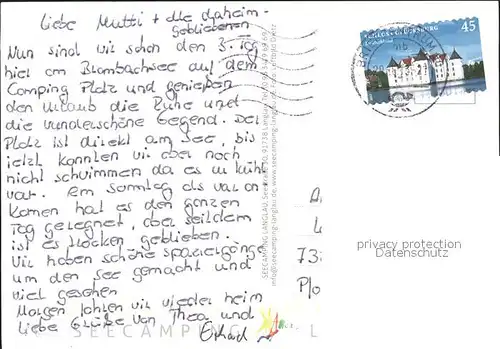 Liebe Mutti + alle daheim-
gebliebenen
Nun sind wir schon den 3. Tag
hier am Brombachsee auf dem
Camping Platz und genießen
den Urlaub die Ruhe und
die wunderschöne Gegend. Der
Platz ist direkt am See, bis
jetzt konnten wir aber noch
nicht schwimmen da es zu kühl
war. Am Sonntag als wir an
kamen hat es den ganzen
Tag geregnet, aber seitdem
ist es trocken geblieben.
Wir haben schöne Spaziergänge
um den See gemacht und
viel gesehen
Morgen fahren wir wieder heim
Liebe Grüße von Thea und
Erhard
SEECAMPING L
SEECAMPING LANGLAU
45
privacy protection
Datenschutz
73